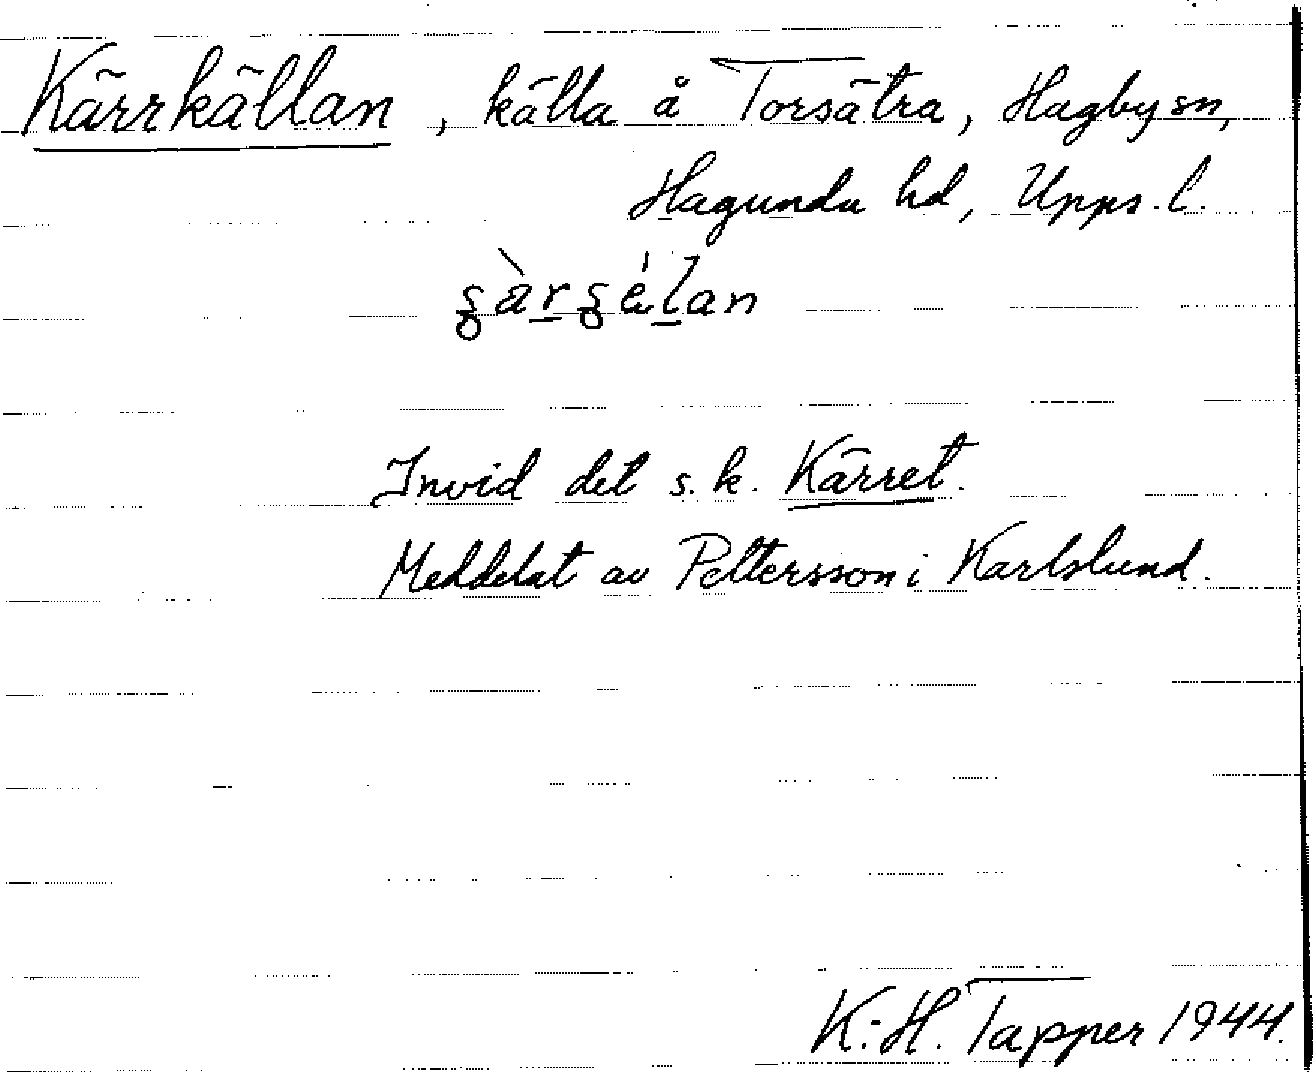 Kärrkällan, källa å Torsätra, Hagby sn,
Hagunda hd, Upps. l.
Invid det s.k. Kärret.
Meddelat av Pettersson i Karlslund.
K.-H. Tapper 1944.